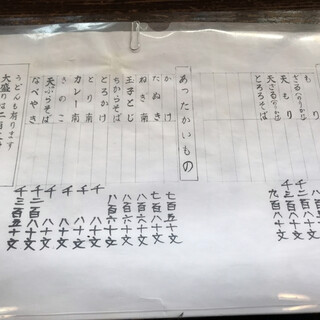 もり
ざる(のりかけ)
天もり
天ざる(のりかけ)
とろろそば 九百八十文
あったかいもの
かけ 七百五十文
たぬき 七百八十文
ねぎ南 八百六十文
玉子とじ 八百六十文
ちからそば
とろろかけ
とり南 千八十文
カレー南 千八十文
きのこ 千八十文
天ぷらそば 千二百八十文
なべやき 千三百五十文
うどんも有ります
大盛りは二